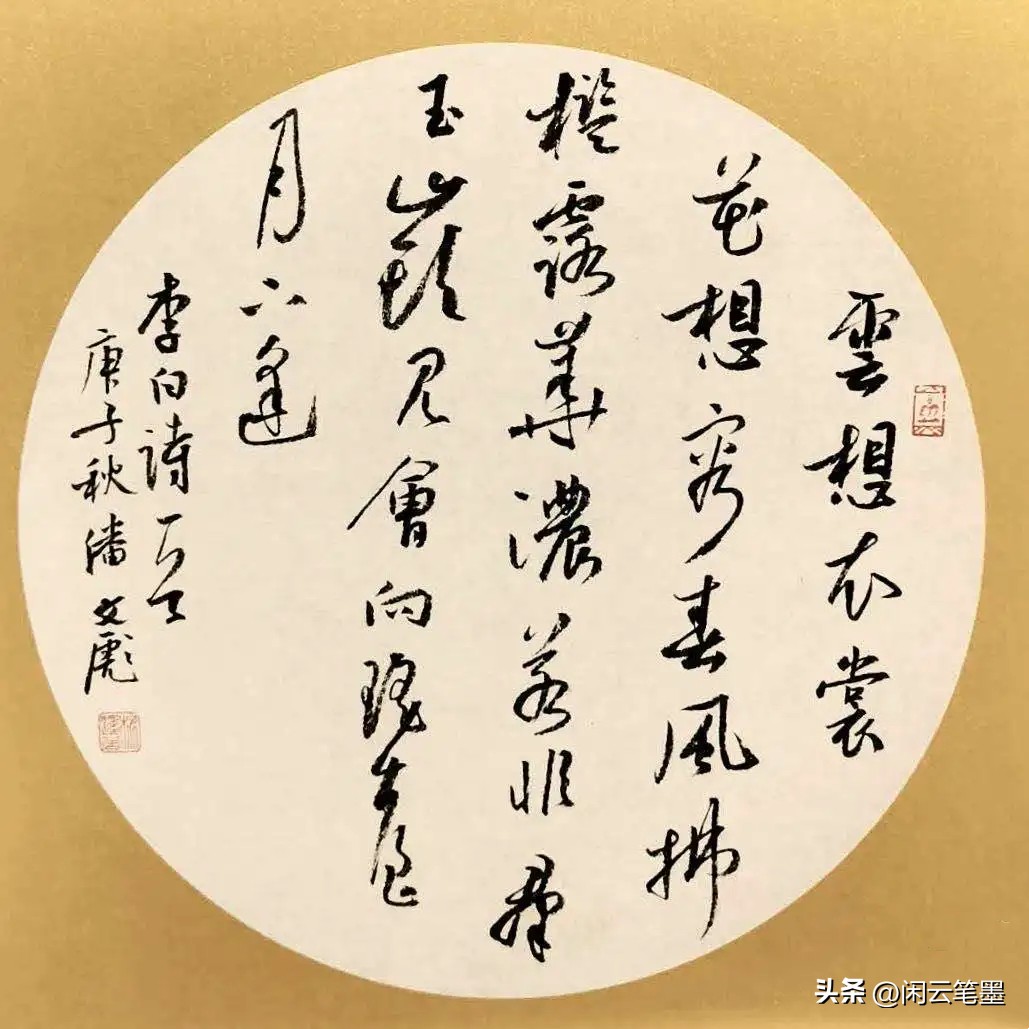 雲想衣裳
花想容春風拂
檻露華濃若非羣
玉山頭見會向瑤臺
月下逢
李白詩
庚子秋潘文彪
头条 @闲云笔墨